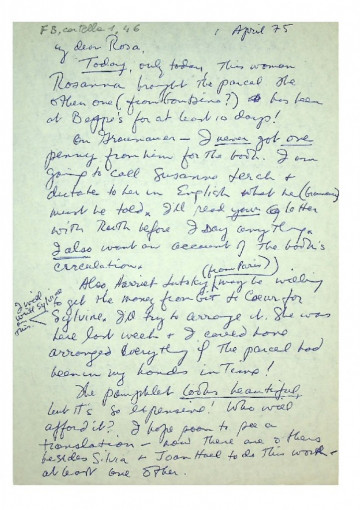 FB, cartella 1, 46
1 April 75
my dear Rosa,
Today, only today this woman
Rosanna brought the parcel the
other one (from Londine?) has been
at Beppo's for at least 10 days!
On Graunauer — I never got one
penny from him for the book. I am
going to call Susanna Lerch &
dictate to her in English what he
must be told. I'll read your letter
with Ruth before I say anything.
I also want an account of the book's
circulation.
Also, Harriet Lutzky (from Paris) may be willing
to get the money from Git le Coeur for
Sylvine. I'll try to arrange it. She was
here last week & I could have
arranged everything if the parcel had
been in my hands in time!
I will
write Sylvine
this.
The pamphlet looks beautiful,
but it's so expensive! Who will
afford it? I hope soon to see a
translation — now there are others
besides Silvia & Joan Hall to do this work —
at least one other.